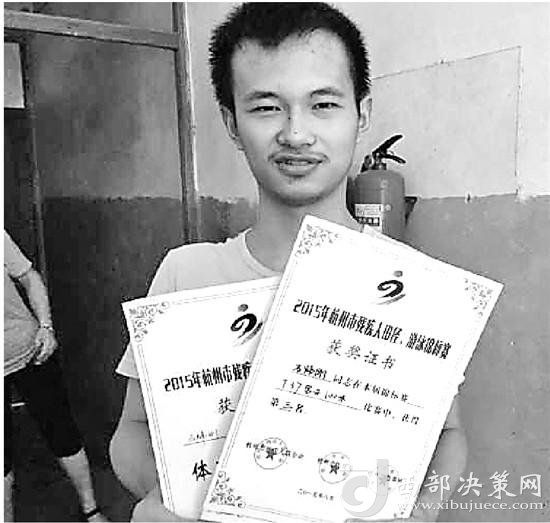 2015年杭州市残疾人田径、游泳锦标赛
获奖证书
同志在本届锦标赛
T37男子100米 比赛中,获得
第三名
2015年杭州市残疾
获
体
西部决策网
www.xibujuece.com